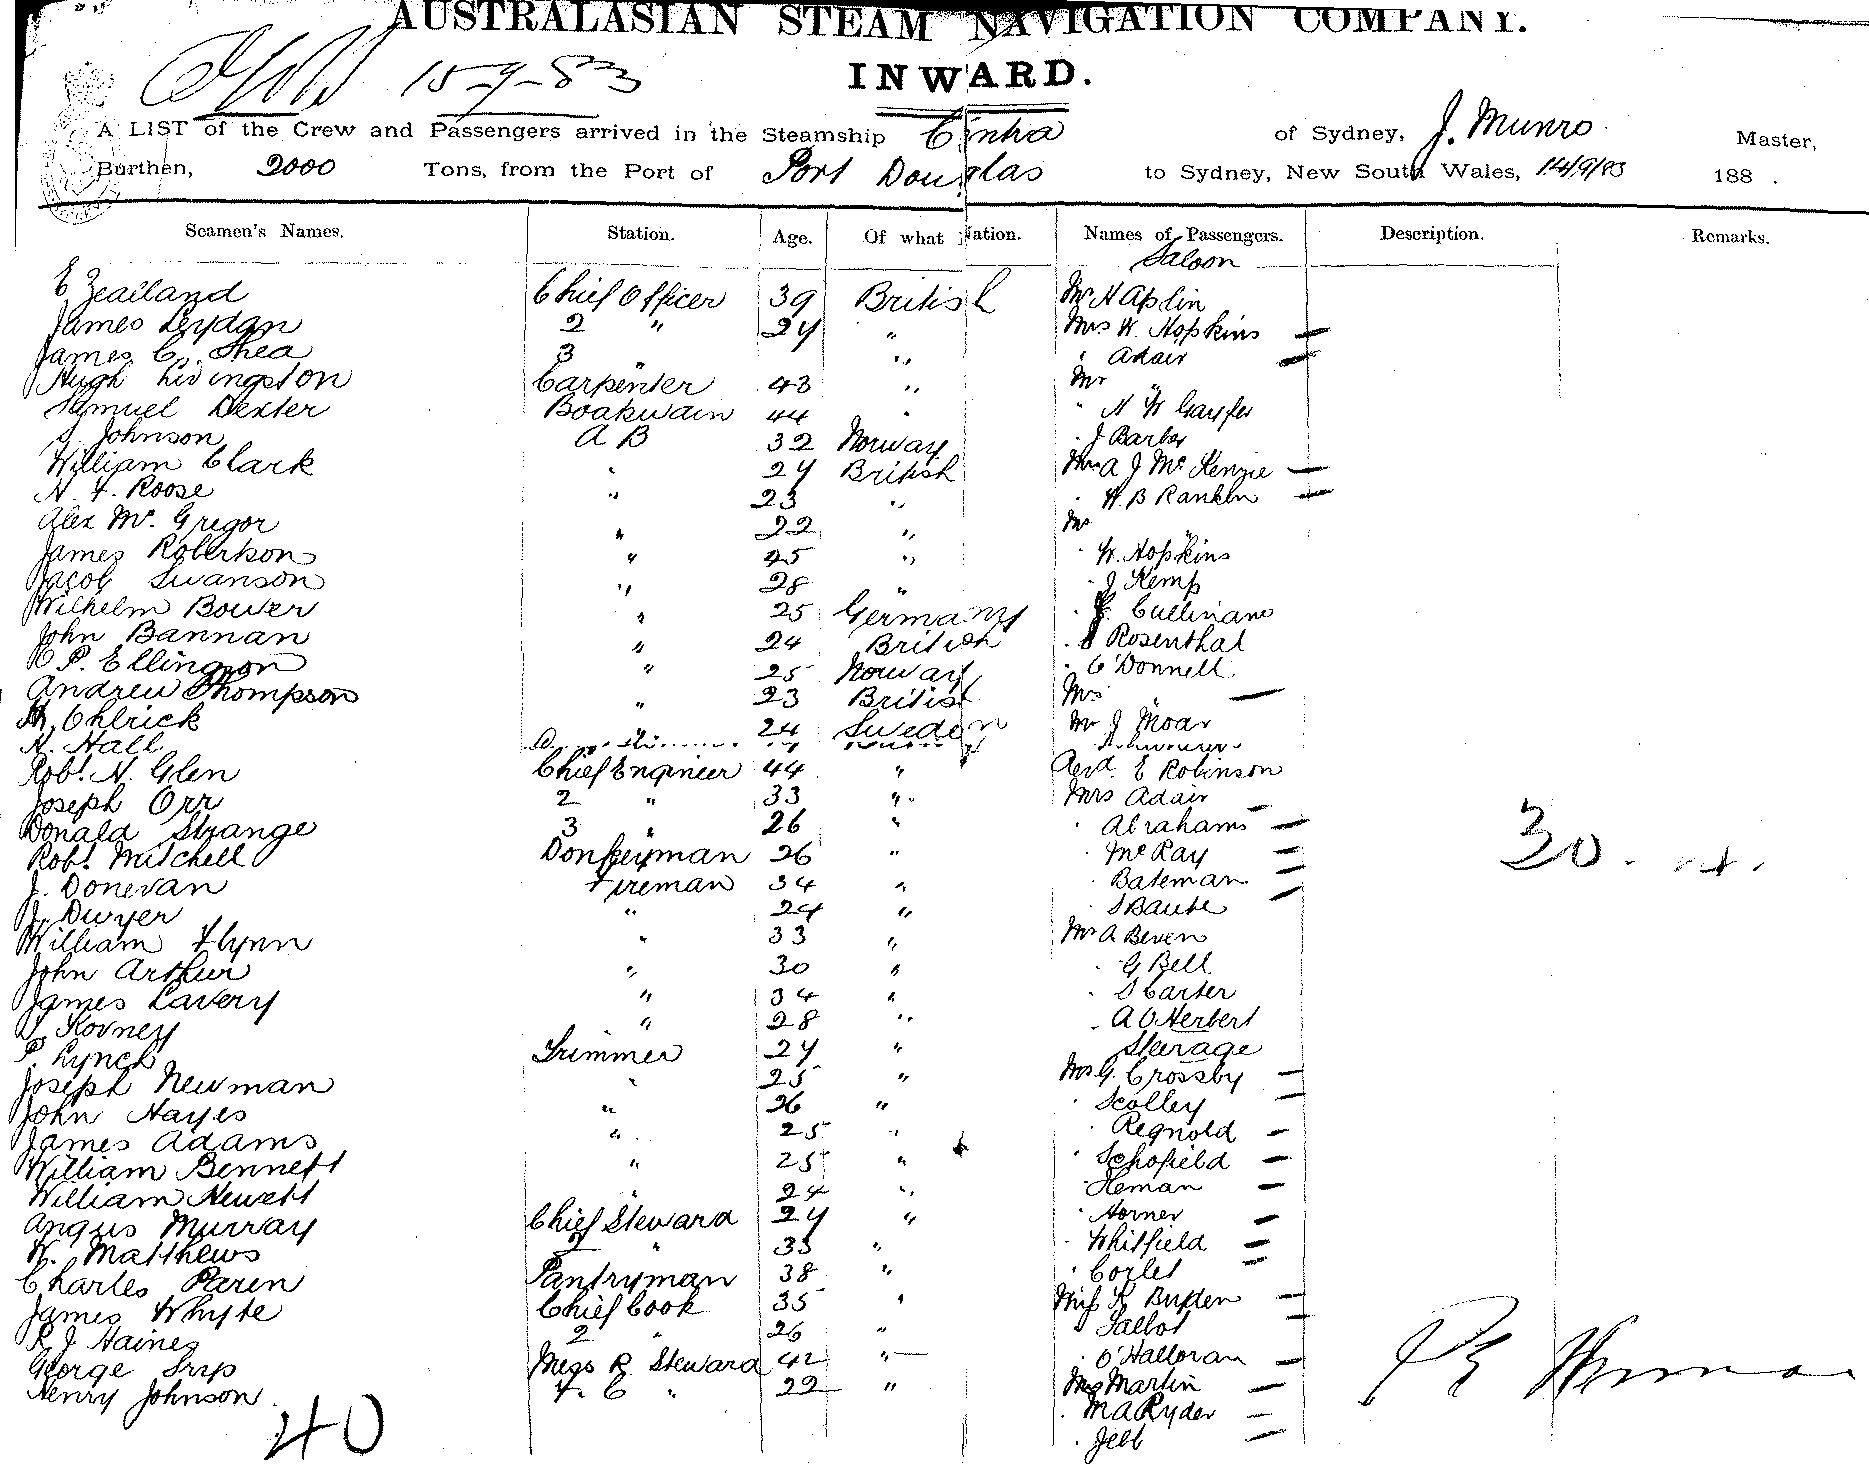 AUSTRALASIAN STEAM NAVIGATION COMPANY.
INWARD.
15-9-83
A LIST of the Crew and Passengers arrived in the Steamship Cintra of Sydney, J. Munro Master,
Burthen, 2000 Tons, from the Port of Port Douglas to Sydney, New South Wales, 14/9/83 188 .
Seamen's Names. Station. Age. Of what Nation. Names of Passengers. Description. Remarks.
Saloon
E Zeailand Chief Officer 39 British Mr H Aplin
James Leydan 2 " 27 " Mrs W. Hopkins —
James C. Shea 3 " " " Adair —
Hugh Livingston Carpenter 43 " Mr "
Samuel Dexter Boatswain 44 " " H W Gayfer
Johnson A B 32 Norway " J Barber
William Clark " 27 British Mrs A J McKenzie —
N. F. Roose " 23 " " W. B Rankin —
Alex McGregor " 22 " Mr "
James Robertson " 25 " " W. Hopkins
Jacob Swanson " 28 " " J Kemp
Wilhelm Bower " 25 Germany " Cullinane
John Bannan " 24 British " Rosenthal
P. Ellingson " 25 Norway " O'Donnell
Andrew Thompson " 23 British Mrs " —
Ohlrick " 24 Sweden Mr J Moar
H. Hall
Robt. N. Glen Chief Engineer 44 " Revd. E Robinson
Joseph Orr 2 " 33 " Mrs Adair
Donald Strange 3 " 26 " " Abrahams —
Robt. Mitchell Donkeyman 26 " " McRay —
J. Donevan Fireman 34 " " Bateman —
J. Dwyer " 24 " " S Baute —
William Flynn " 33 " Mr A Beven
John Arthur " 30 " " G Bell
James Lavery " 34 " " S Carter
Kovney " 28 " " A O Herbert
P. Lynch Trimmer 27 " Steerage
Joseph Newman " 25 " Mrs G. Crossby —
John Hayes " 26 " " Scolley —
James Adams " 25 " " Regnold —
William Bennett " 25 " " Schofield —
William Newett " 24 " " Heman —
Angus Murray Chief Steward 27 " " Horner —
W. Matthews 2 " 35 " " Whitfield —
Charles Paren Pantryman 38 " " Corlet —
James Whyte Chief Cook 35 " Miss K Buxden —
R. J. Haines 2 " 26 " " Talbot —
George Srip Mess R. Steward 42 " " O'Halloran —
Henry Johnson F. C " 22 " Mrs Martin —
" M A Ryder —
" Jebb —
30
40